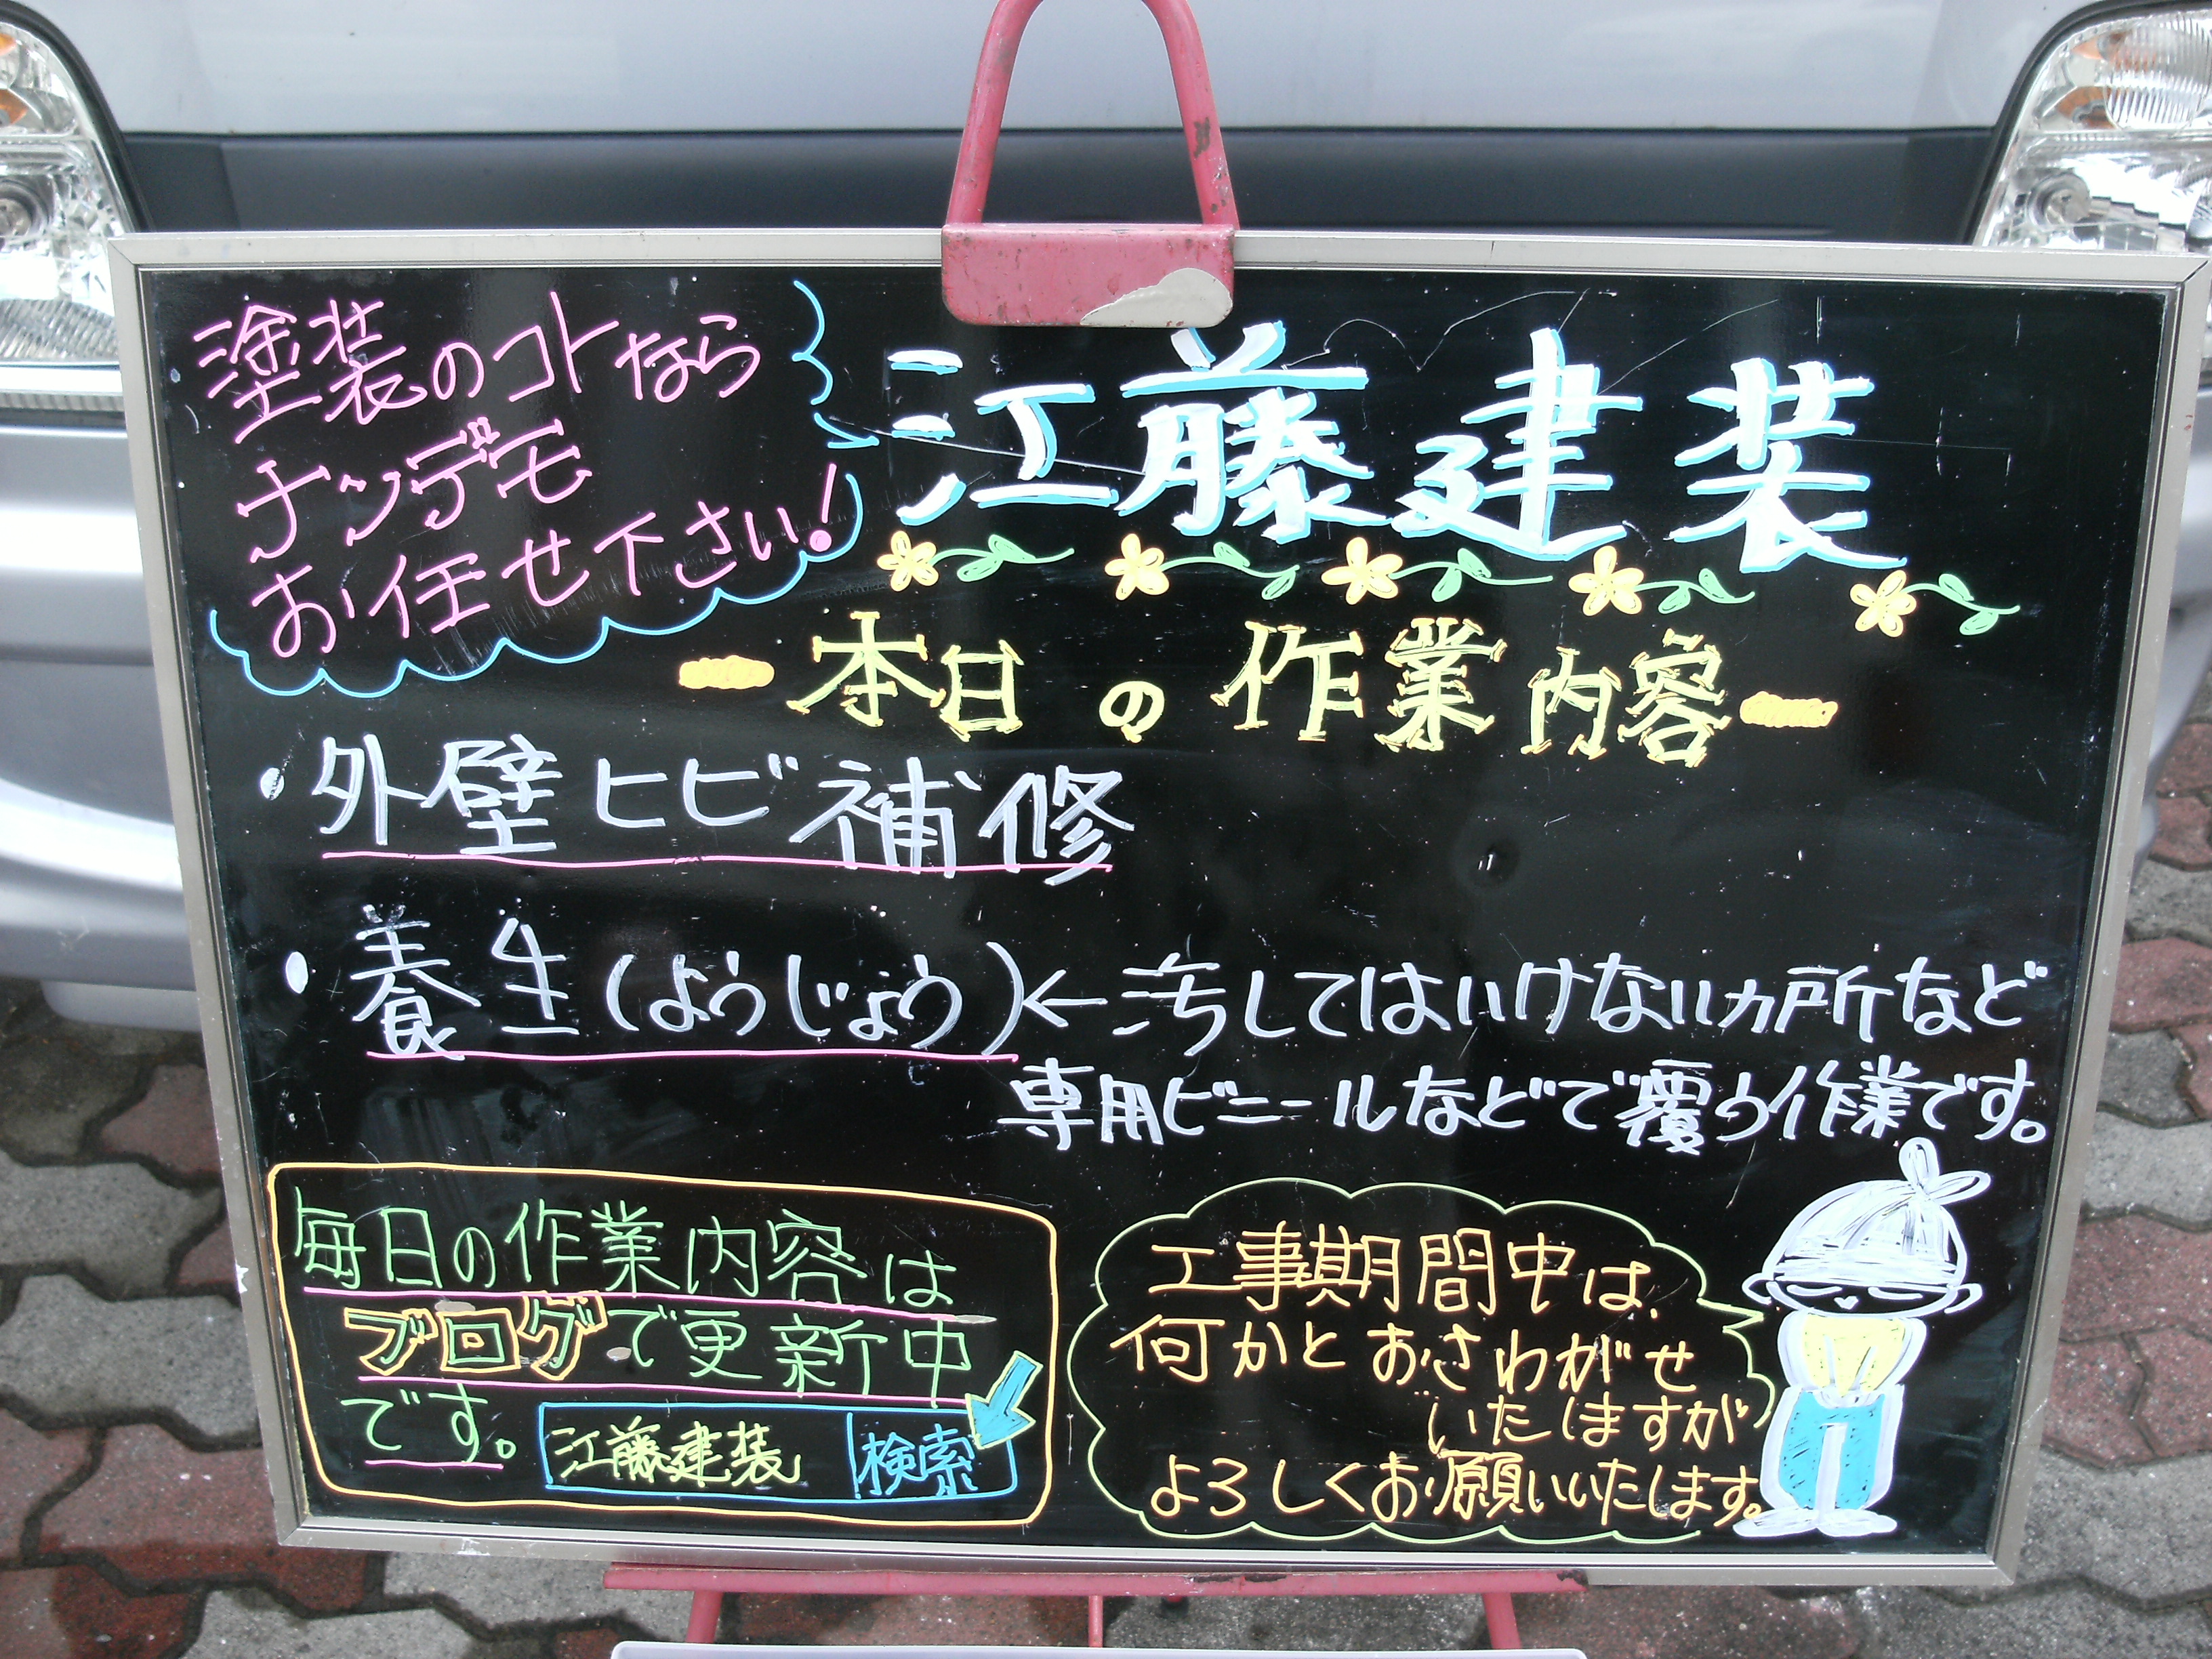 塗装のコトなら
ナンデモ
お任せ下さい!
江藤建装
本日の作業内容
・外壁ヒビ補修
・養生(ようじょう)←汚してはいけないカ所など
専用ビニールなどで覆う作業です。
毎日の作業内容は
ブログで更新中
です。
江藤建装 検索
工事期間中は、
何かとおさわがせ
いたしますが
よろしくお願いいたします。